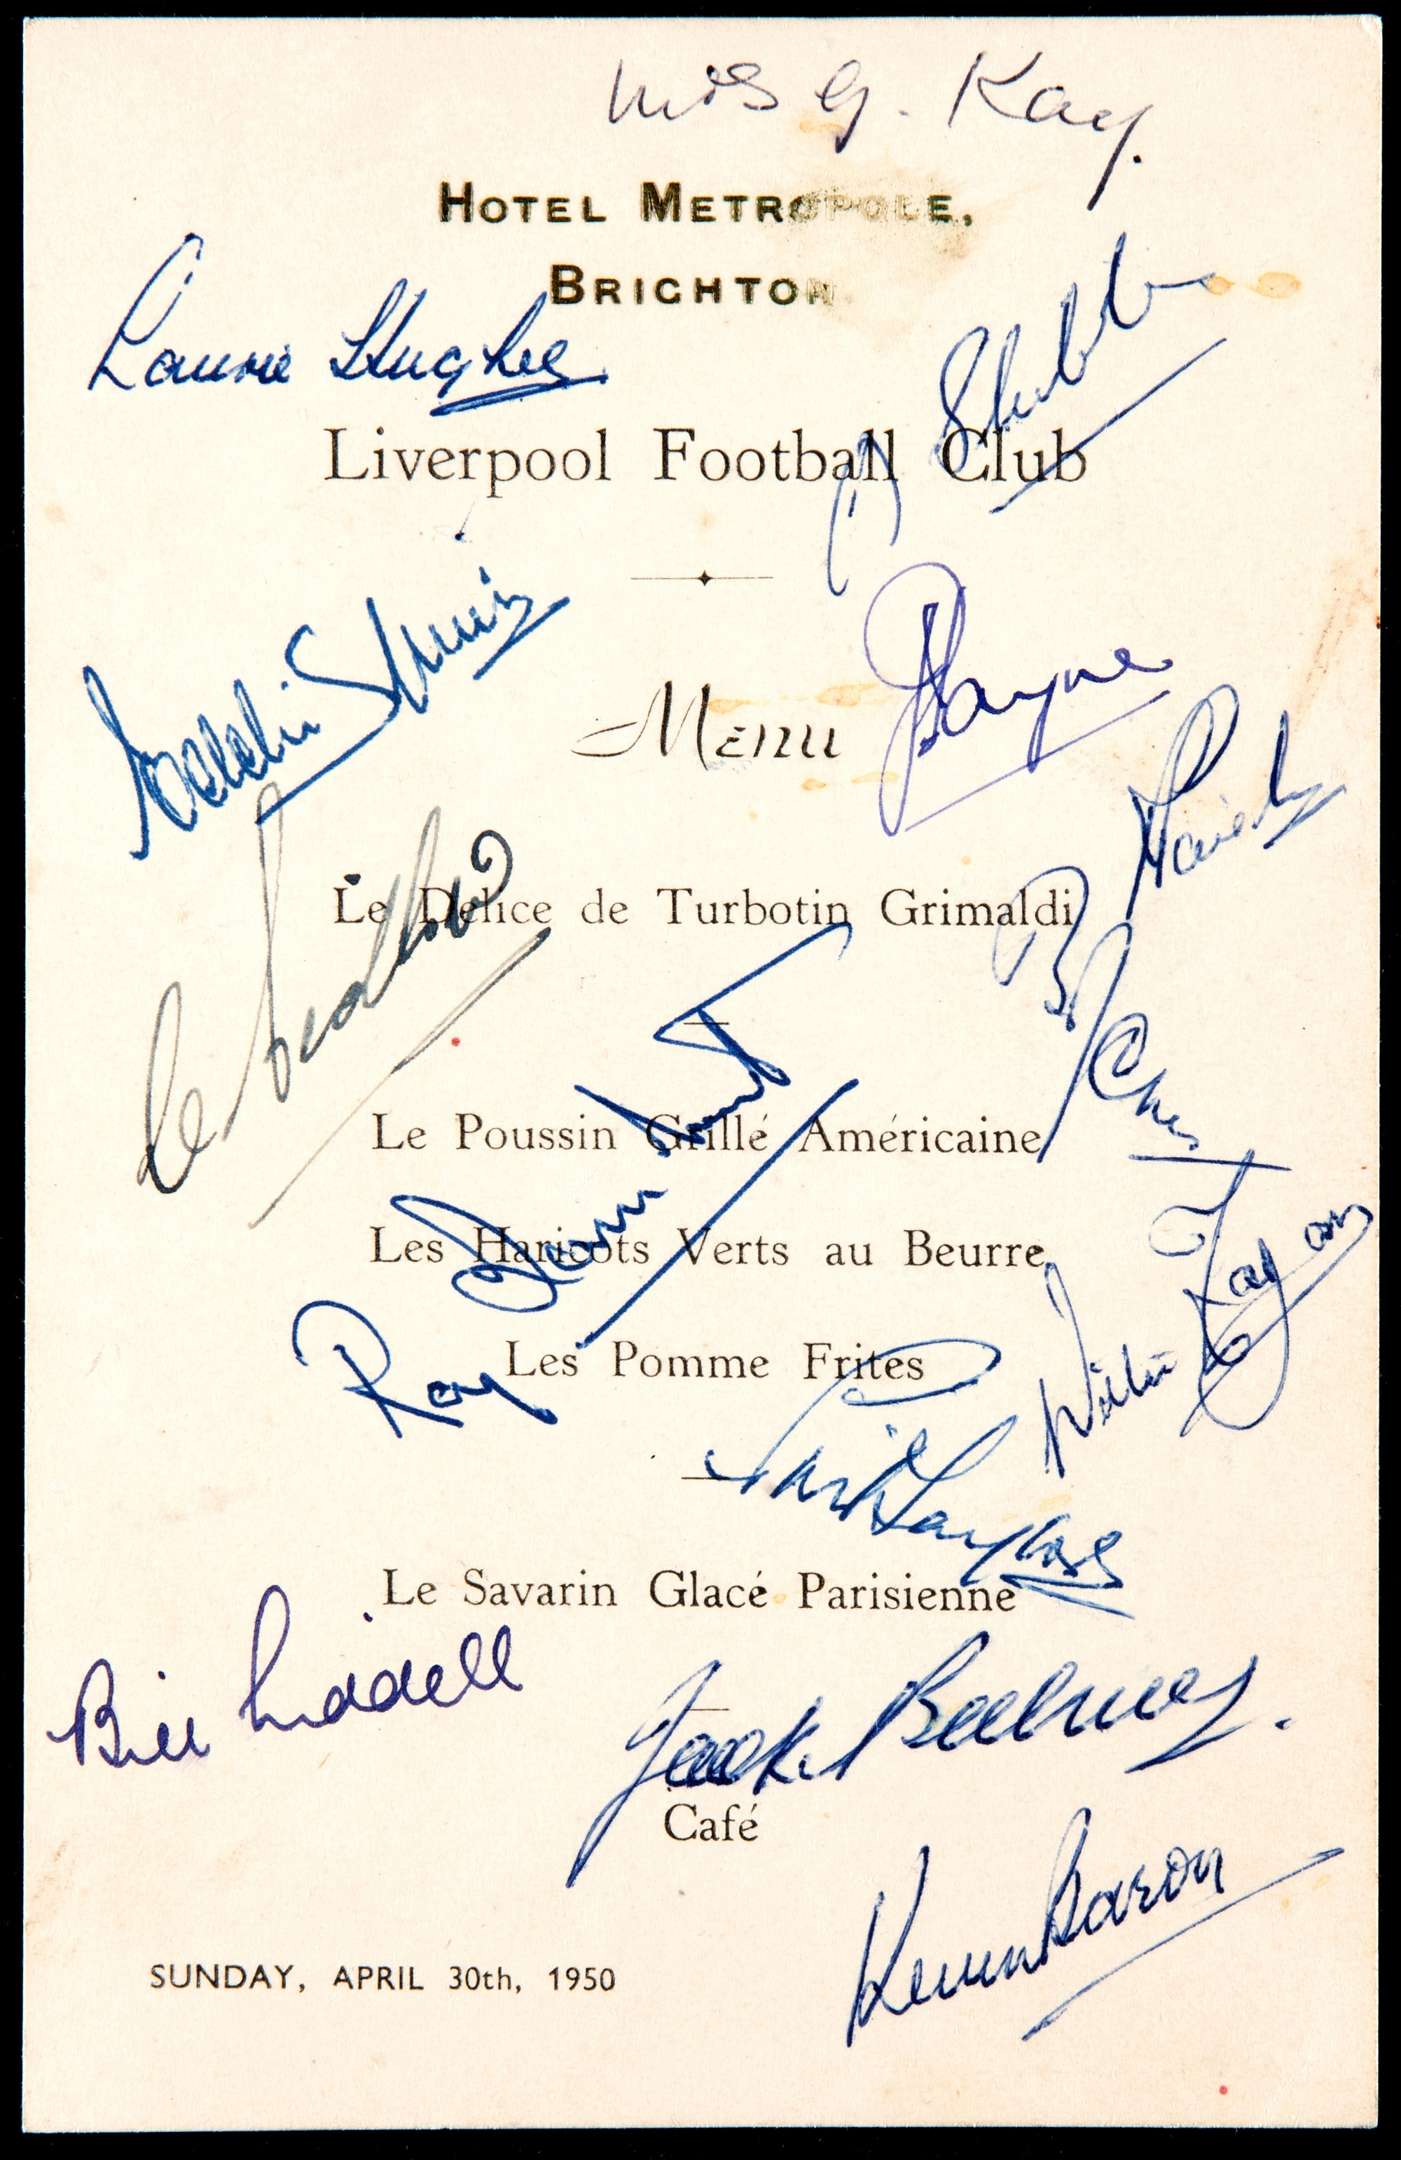 Mrs G. Kay.
HOTEL METROPOLE,
BRIGHTON.
Laurie Hughes
Liverpool Football Club
Eddie Spicer
Menu
Payne
Le Délice de Turbotin Grimaldi
Le Poussin Grillé Américaine
Les Haricots Verts au Beurre
Ray Lambert
Les Pomme Frites
Willie Fagan
Phil Taylor
Le Savarin Glacé Parisienne
Bill Liddell
Jack Balmer.
Café
Kevin Baron
SUNDAY, APRIL 30th, 1950